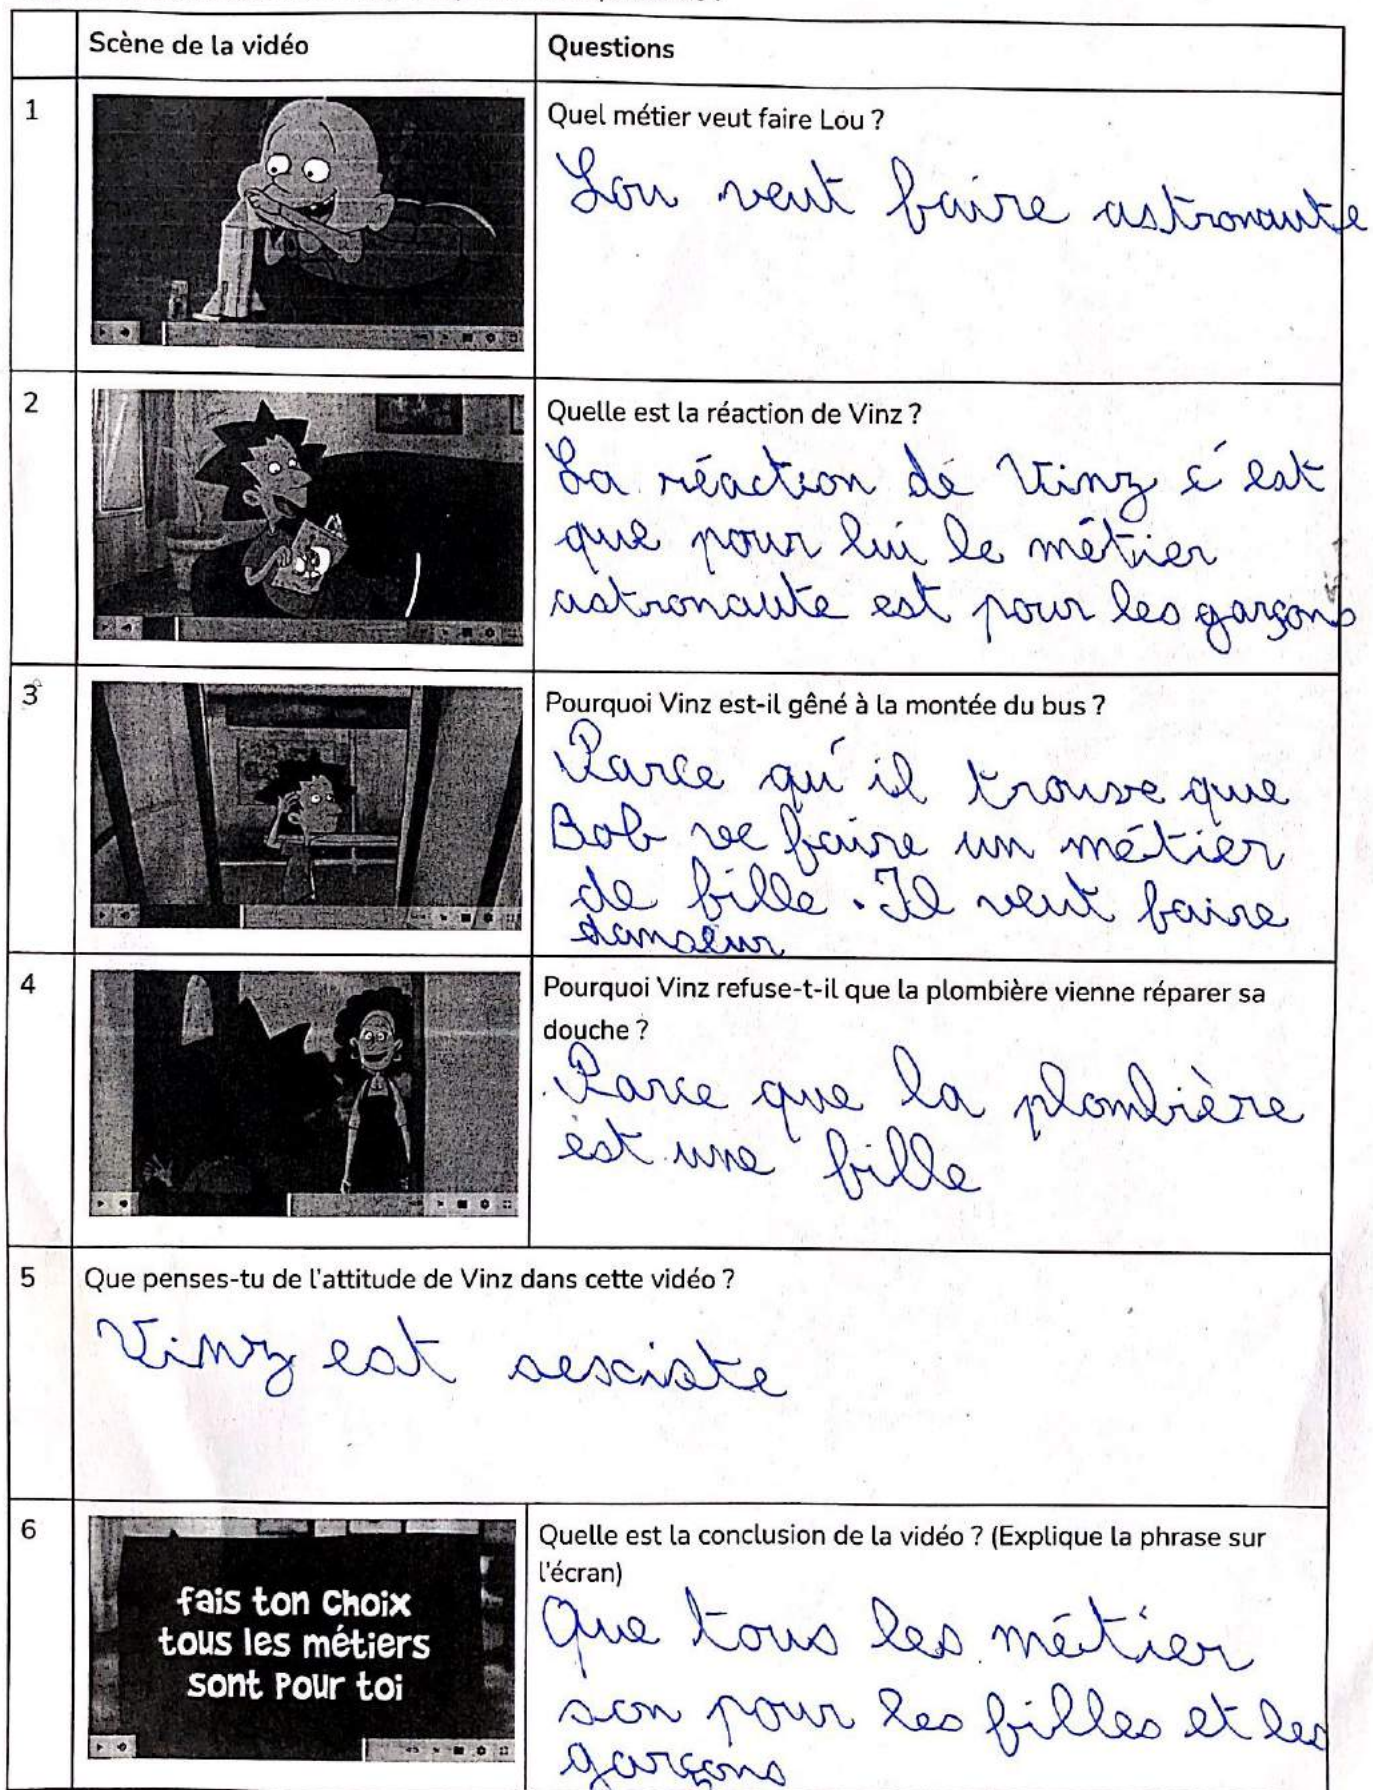 Scène de la vidéo
Questions
1
Quel métier veut faire Lou ?
Lou veut faire astronaute
2
Quelle est la réaction de Vinz ?
La réaction de Vinz c'est
que pour lui le métier
astronaute est pour les garçons
3
Pourquoi Vinz est-il gêné à la montée du bus ?
Parce qu'il trouve que
Bob faire un métier
de fille. Il veut faire
danseur
4
Pourquoi Vinz refuse-t-il que la plombière vienne réparer sa
douche ?
Parce que la plombière
est une fille
5
Que penses-tu de l'attitude de Vinz dans cette vidéo ?
Vinz est sexciste
6
fais ton choix
tous les métiers
sont pour toi
Quelle est la conclusion de la vidéo ? (Explique la phrase sur
l'écran)
Que tous les métier
son pour les filles et les
garçons